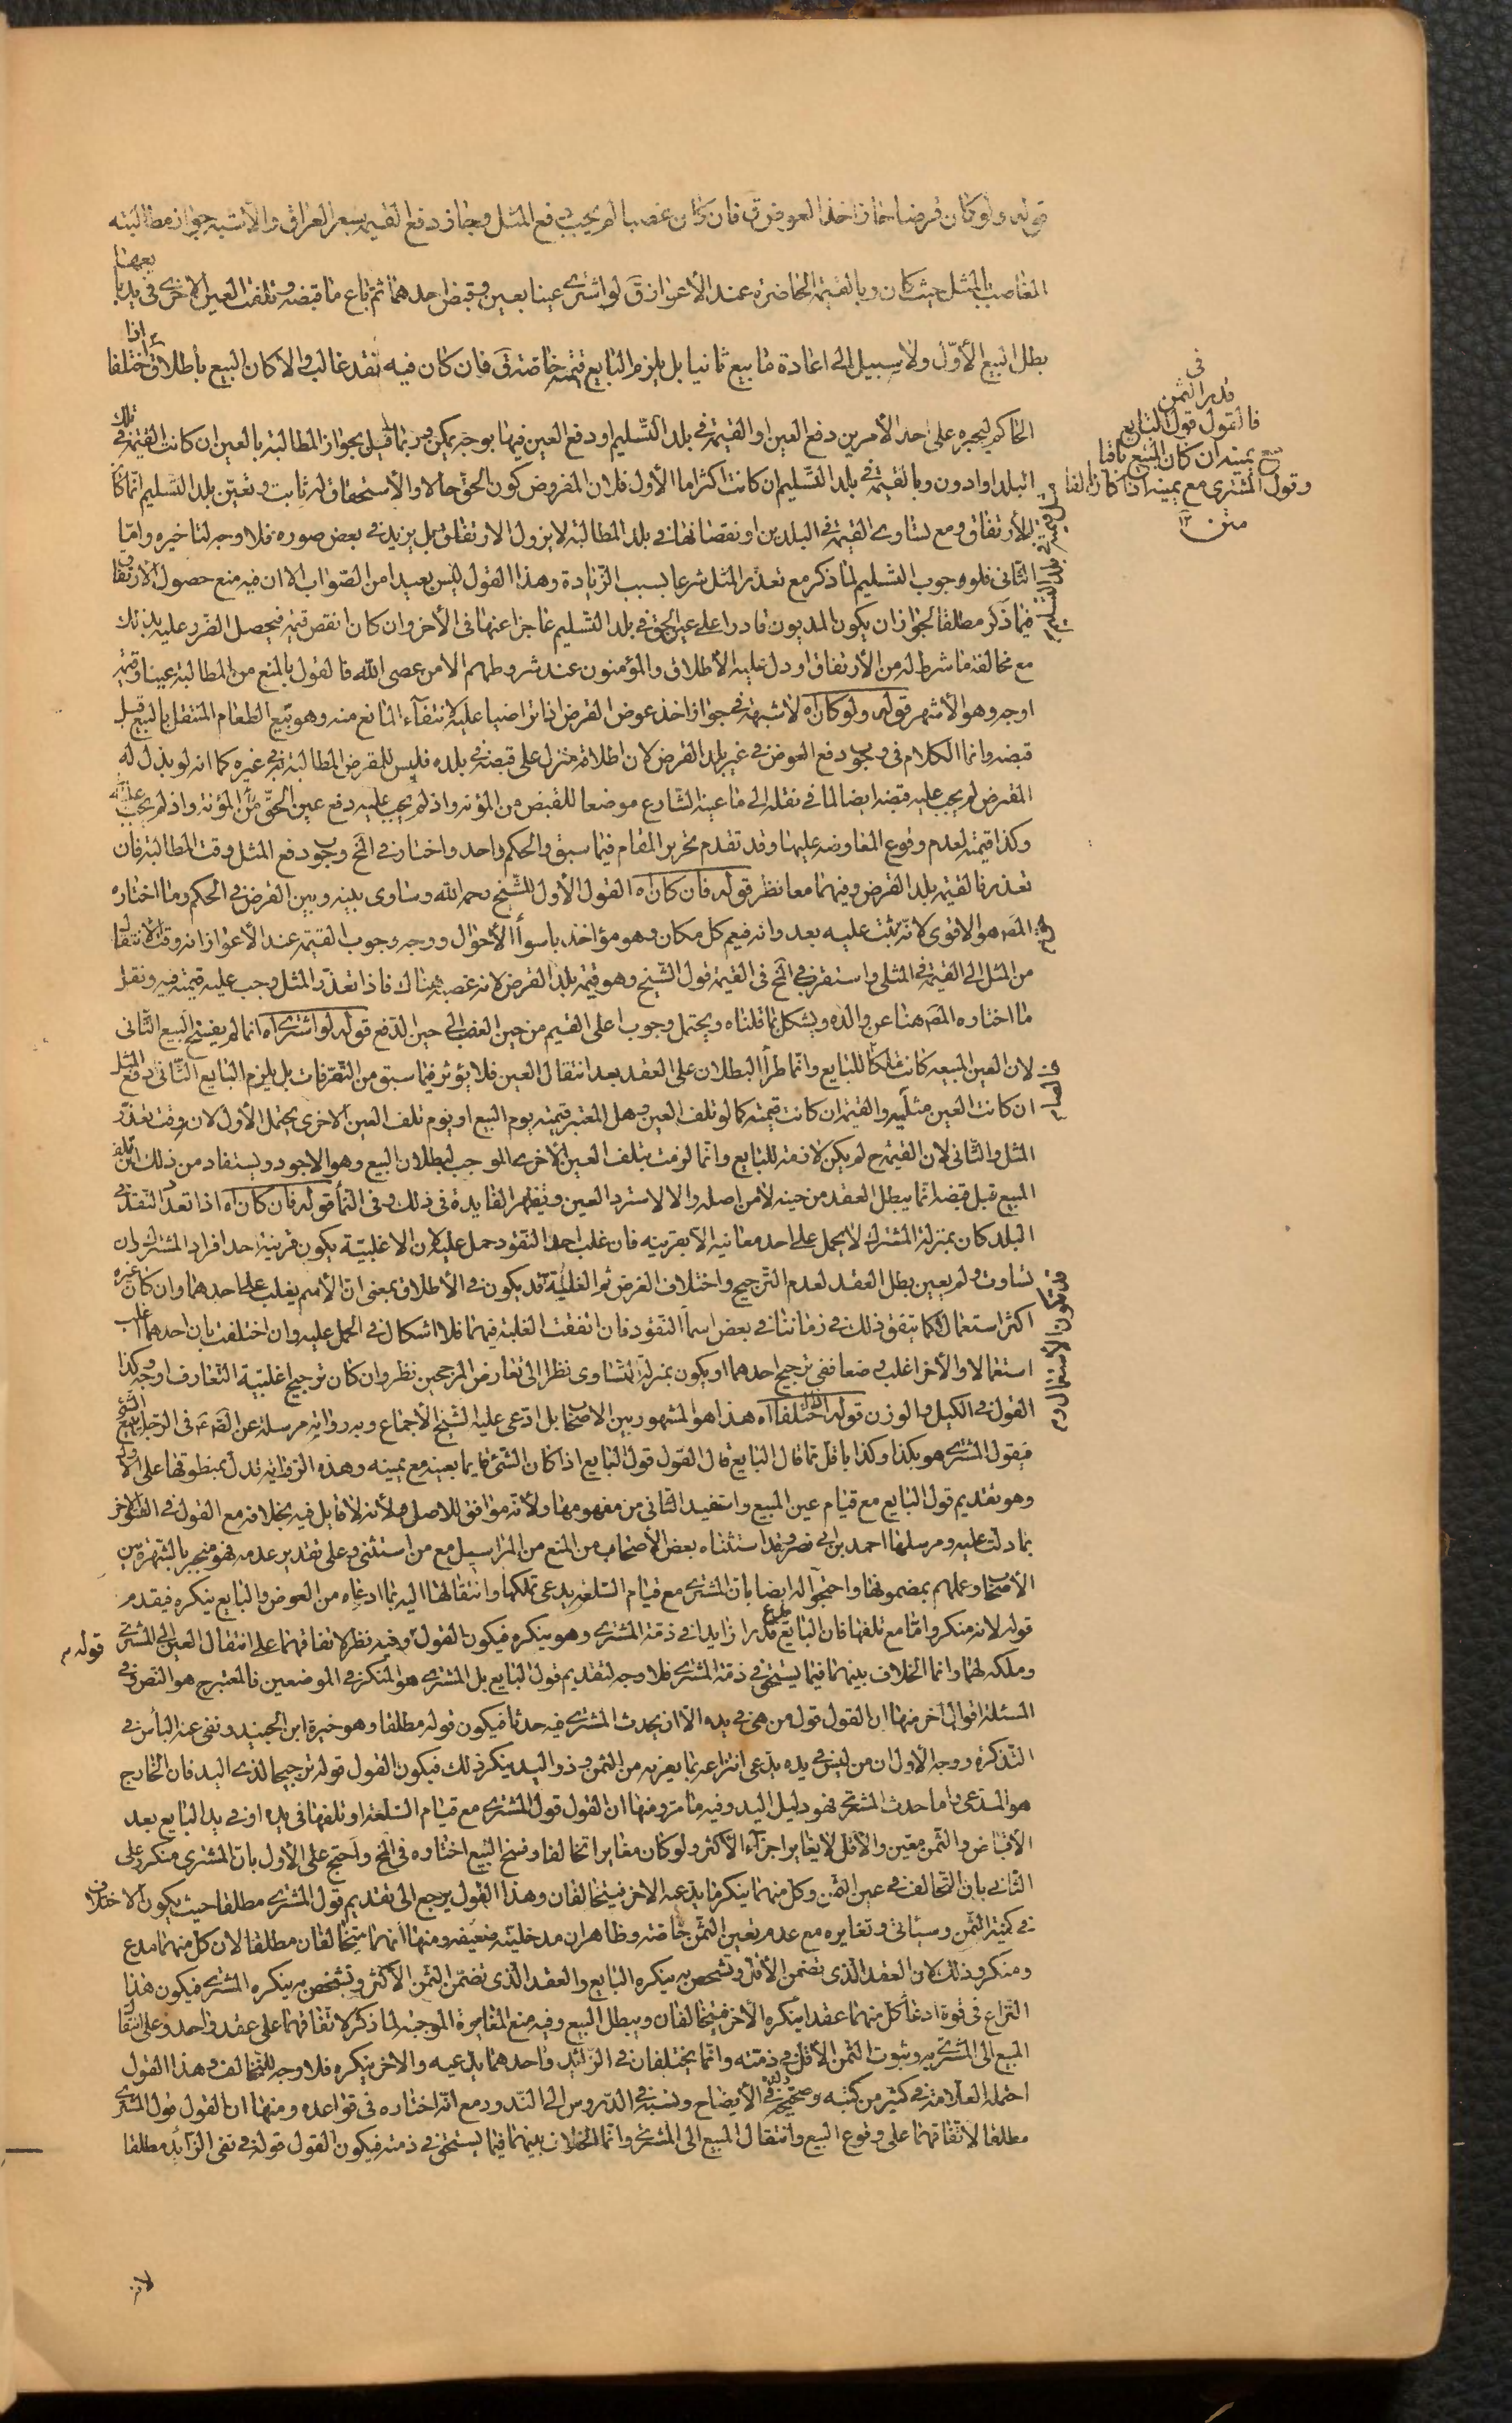 قوله ولو كان قرضا جاز اخذ العوض ق فان كان غصبا لم يجب دفع المثل وجاز دفع القيمة بسعر العراق والأشبه جواز مطالبته
الغاصب بالمثل حيث كان وبالقيمة الحاضرة عند الأعواز ق لو اشترى عينا بعين وقبض احدهما ثم باع ما قبضه وتلفت العين الاخرى في يد بايعها
بطل البيع الأوّل ولا سبيل الى اعادة ما بيع ثانيا بل يلزم البايع قيمته لصاحبه ق فان كان فيه نقد غالب والا كان البيع باطلا ق اذا اختلفا
في
قدر الثمن
فالقول قول البايع
مع يمينه ان كان المبيع باقيا
وقول المشترى مع يمينه اذا كان تالفا
متن ١٢
الحاكم ليجبره على احد الأمرين دفع العين او القيمة في بلد التسليم او دفع العين فيها بوجه يمكن وربما قيل بجواز المطالبة بالعين ان كانت القيمة في تلك
البلد او ادون وبالقيمة في بلد التسليم ان كانت اكثر اما الأول فلان المفروض كون الحق حالا والأستحقاق له ثابت وتعين بلد التسليم انما كان
للأرتفاق ومع تساوى القيمة في البلدين او نقصانها في بلد المطالبة لا يزول الارتفاق بل يزيد في بعض صوره فلا وجه لتاخيره وامّا
الثّانى فلوجوب التسليم لما ذكر مع تعذّر المثل شرعا بسبب الزّيادة وهذا القول ليس بعيدا من الصّواب الا ان فيه منع حصول الارتفاق
فيما ذكر مطلقا لجواز ان يكون المديون قادرا على عين الحق في بلد التسليم عاجزا عنها في الأخر وان كان انقص قيمة فيحصل الضرر عليه بذلك
مع مخالفة ما شرط له من الأرتفاق او دل عليه الأطلاق والمؤمنون عند شروطهم الا من عصى الله فالقول بالمنع من المطالبة عينا وقيمة
اوجه وهو الأشهر قوله ولو كان اه لا شبهة في جواز اخذ عوض القرض اذا تراضيا عليه لانتفآء المانع منه وهو بيع الطعام المنتقل بالبيع قبل
قبضه وانما الكلام في وجوب دفع العوض في غير بلد القرض لان اطلاقه منزل على قبضه في بلده فليس للمقرض المطالبة به في غيره كما انه لو بذل له
المقترض لم يجب عليه قبضه ايضا لما في نقله الى ما عينه الشارع موضعا للقبض من المؤنه واذ لم يجب عليه دفع عين الحقّ من المؤنة واذ لم يجب عليه
وكذا قيمته لعدم وقوع المعاوضه عليها وقد تقدم تحرير المقام فيما سبق والحكم واحد واختار في المخ وجوب دفع المثل وقت المطالبة فان
تعذر فالقيمة بلد القرض وفيهما معا نظر قوله فان كان اه القول الأول للشّيخ رحمه الله وساوى بينه وبين القرض في الحكم وما اختاره
المصه هو الاقوى لانّه يثبت عليه بعدوانه فيعم كل مكان وهو مؤاخذ باسوأ الأحوال ووجه وجوب القيمة عند الأعواز انه وقت الانتقال
من المثل الى القيمة في المثلى واستقرب في المخ في القيمة قول الشّيخ وهو قيمة بلد القرض لانه غصبه هناك فاذا تعذّر المثل وجب عليه قيمته فيه ونقل
ما اختاره المصه هنا عن والده ويشكل بما قلناه ويحتمل وجوب اعلى القيم من حين الغصب الى حين الدّفع قوله لو اشترى اه انما لم يفسخ البيع الثّانى
لان العين المبيعة كانت ملكا للبايع وانّما طرأ البطلان على العقد بعد انتقال العين فلا يؤثر فيما سبق من التّصّرفات بل يلزم البايع الثّانى دفع المثل
ان كانت العين مثليّه والقيمة ان كانت قيمته كما لو تلفت العين وهل المعتبر قيمته يوم البيع او يوم تلف العين الاخرى يحتمل الأول لان وقت تعذّر
المثل والثّانى لان القيمة ح لم يكن لازمة للبايع وانّما لزمت بتلف العين الأخرى الموجب لبطلان البيع وهو الاجود ويستفاد من ذلك ان تلف
المبيع قبل قبضه انّما يبطل العقد من حينه لا من اصله والا لاسترد العين وتظهر الفايدة في ذلك وفي النمآ قوله فان كان اه اذا تعدّد النّقد في
البلد كان بمنزلة المشترك لا يحمل على احد معانيه الّا بقرينه فان غلب احد النقود حمل عليه لان الاغلبيّة يكون قرينة احد افراد المشترك وان
تساوت ولم يعين بطل العقد لعدم التّرجيح واختلاف الغرض ثم الغلبة قد يكون في الأطلاق بمعنى انّ الأسم يغلب على احدهما وان كان غيره
اكثر استعمالا كما يتفق ذلك في زماننا في بعض اسمآ النقود فان اتفقت الغلبة فيهما فلا اشكال في الحمل عليه وان اختلفت بان احدهما اغلب
استعمالا والأخر اغلب وضعا ففي ترجيح احدهما او يكون بمنزلة التّساوى نظرا الى تعارض المرجحين نظر وان كان ترجيح اغلبيّة التّعارف اوجه وكذا
القول في الكيل والوزن قوله اذا اختلفا اه هذا هو المشهور بين الاصحاب بل ادّعى عليه الشيخ الأجماع وبه رواية مرسلة عن الصه ع في الرجل يبيع الشئ
فيقول المشترى هو بكذا وكذا باقل ممّا قال البايع قال القول قول البايع اذا كان الشّئ قايما بعينه مع يمينه وهذه الرّواية تدل بمنطوقها على الأوّل
وهو تقديم قول البايع مع قيام عين المبيع واستفيد الثّانى من مفهومها ولأنّه موافق للاصل ولأنه لا قايل فيه بخلافه مع القول في الأخر
بما دلت عليه ومرسلها احمد بن ابى نصر وقد استثناه بعض الأصحاب من المنع من المراسيل مع من استثنى وعلى تقدير عدمه فهو منجبر بالشهرة بين
الأصحاب وعملهم بمضمونها واحتجّوا له ايضا بان المشترى مع قيام السّلعة يدعى تملّكها وانتقالها اليه بما ادعاه من العوض والبايع ينكره فيقدم
قوله لانه منكر وامّا مع تلفها فان البايع يدعى قدرا زايدا في ذمّة المشترى وهو ينكره فيكون القول قوله وفيه نظر لاتفاقهما على انتقال العين الى المشترى
وملكه لها وانما الخلاف بينهما فيما يستحق في ذمّة المشترى فلا وجه لتقديم قول البايع بل المشترى هو المنكر في الموضعين فالمعتبر ح هو النّص وفي
المسئلة اقوال اخر منها ان القول قول من هى في يده الّا ان يحدث المشترى فيه حدثا فيكون قوله مطلقا وهو خيرة ابن الجنيد ونفى عنه البأس في
التّذكرة ووجه الأول ان من ليس في يده يدعى انتزاعه بما يعزيه من الثمن وذو اليد ينكر ذلك فيكون القول قوله ترجيحا لذى اليد فان الخارج
هو المدّعى واما حدث المشترى فهو دليل اليد وفيه ما مرّ ومنها ان القول قول المشترى مع قيام السّلعة او تلفها في يده او في يد البايع بعد
الأقباض والثّمن معيّن والاقل لا يغاير اجزآء الأكثر ولو كان مغايرا تحالفا وفسخ البيع اختاره في المخ واحتج على الأول بان المشترى منكر وعلى
الثّانى بان التّحالف في عين الثّمن وكل منهما ينكر ما يدّعيه الاخر فيتحالفان وهذا القول يرجع الى تقديم قول المشترى مطلقا حيث يكون الاختلاف
في كميّة الثّمن وسيأتي وتغايره مع عدم تعيين الثمن خاصة وظاهر ان مدخليّته ضعيفه ومنها انّهما يتحالفان مطلقا لان كل منهما مدع
ومنكر وذلك لان العقد الّذى تضمن الأقل وتشخص به ينكره البايع والعقد الّذى تضمّن الثّمن الأكثر وتشخص به ينكره المشترى فيكون هذا
النّزاع في قوة ادعآ كل منهما عقدا ينكره الأخر فيتحالفان ويبطل البيع وفيه منع المغايرة الموجبة لما ذكر لاتّفاقهما على عقد واحد وعلى انتقال
المبيع الى المشترى به وثبوت الثّمن الأقل في ذمّته وانّما يختلفان في الزّائد فاحدهما يدّعيه والاخر ينكره فلا وجه للتّحالف وهذا القول
احتمله العلّامة في كثير من كتبه وصحّحه ولده في الأيضاح ونسبه في الدّروس الى النّدور مع انّه اختاره في قواعده ومنها ان القول قول المشترى
مطلقا لاتّفاقهما على وقوع البيع وانتقال المبيع الى المشترى وانّما الخلاف بينهما فيما يستحق في ذمته فيكون القول قوله في نفى الزّائد مطلقا
لانه